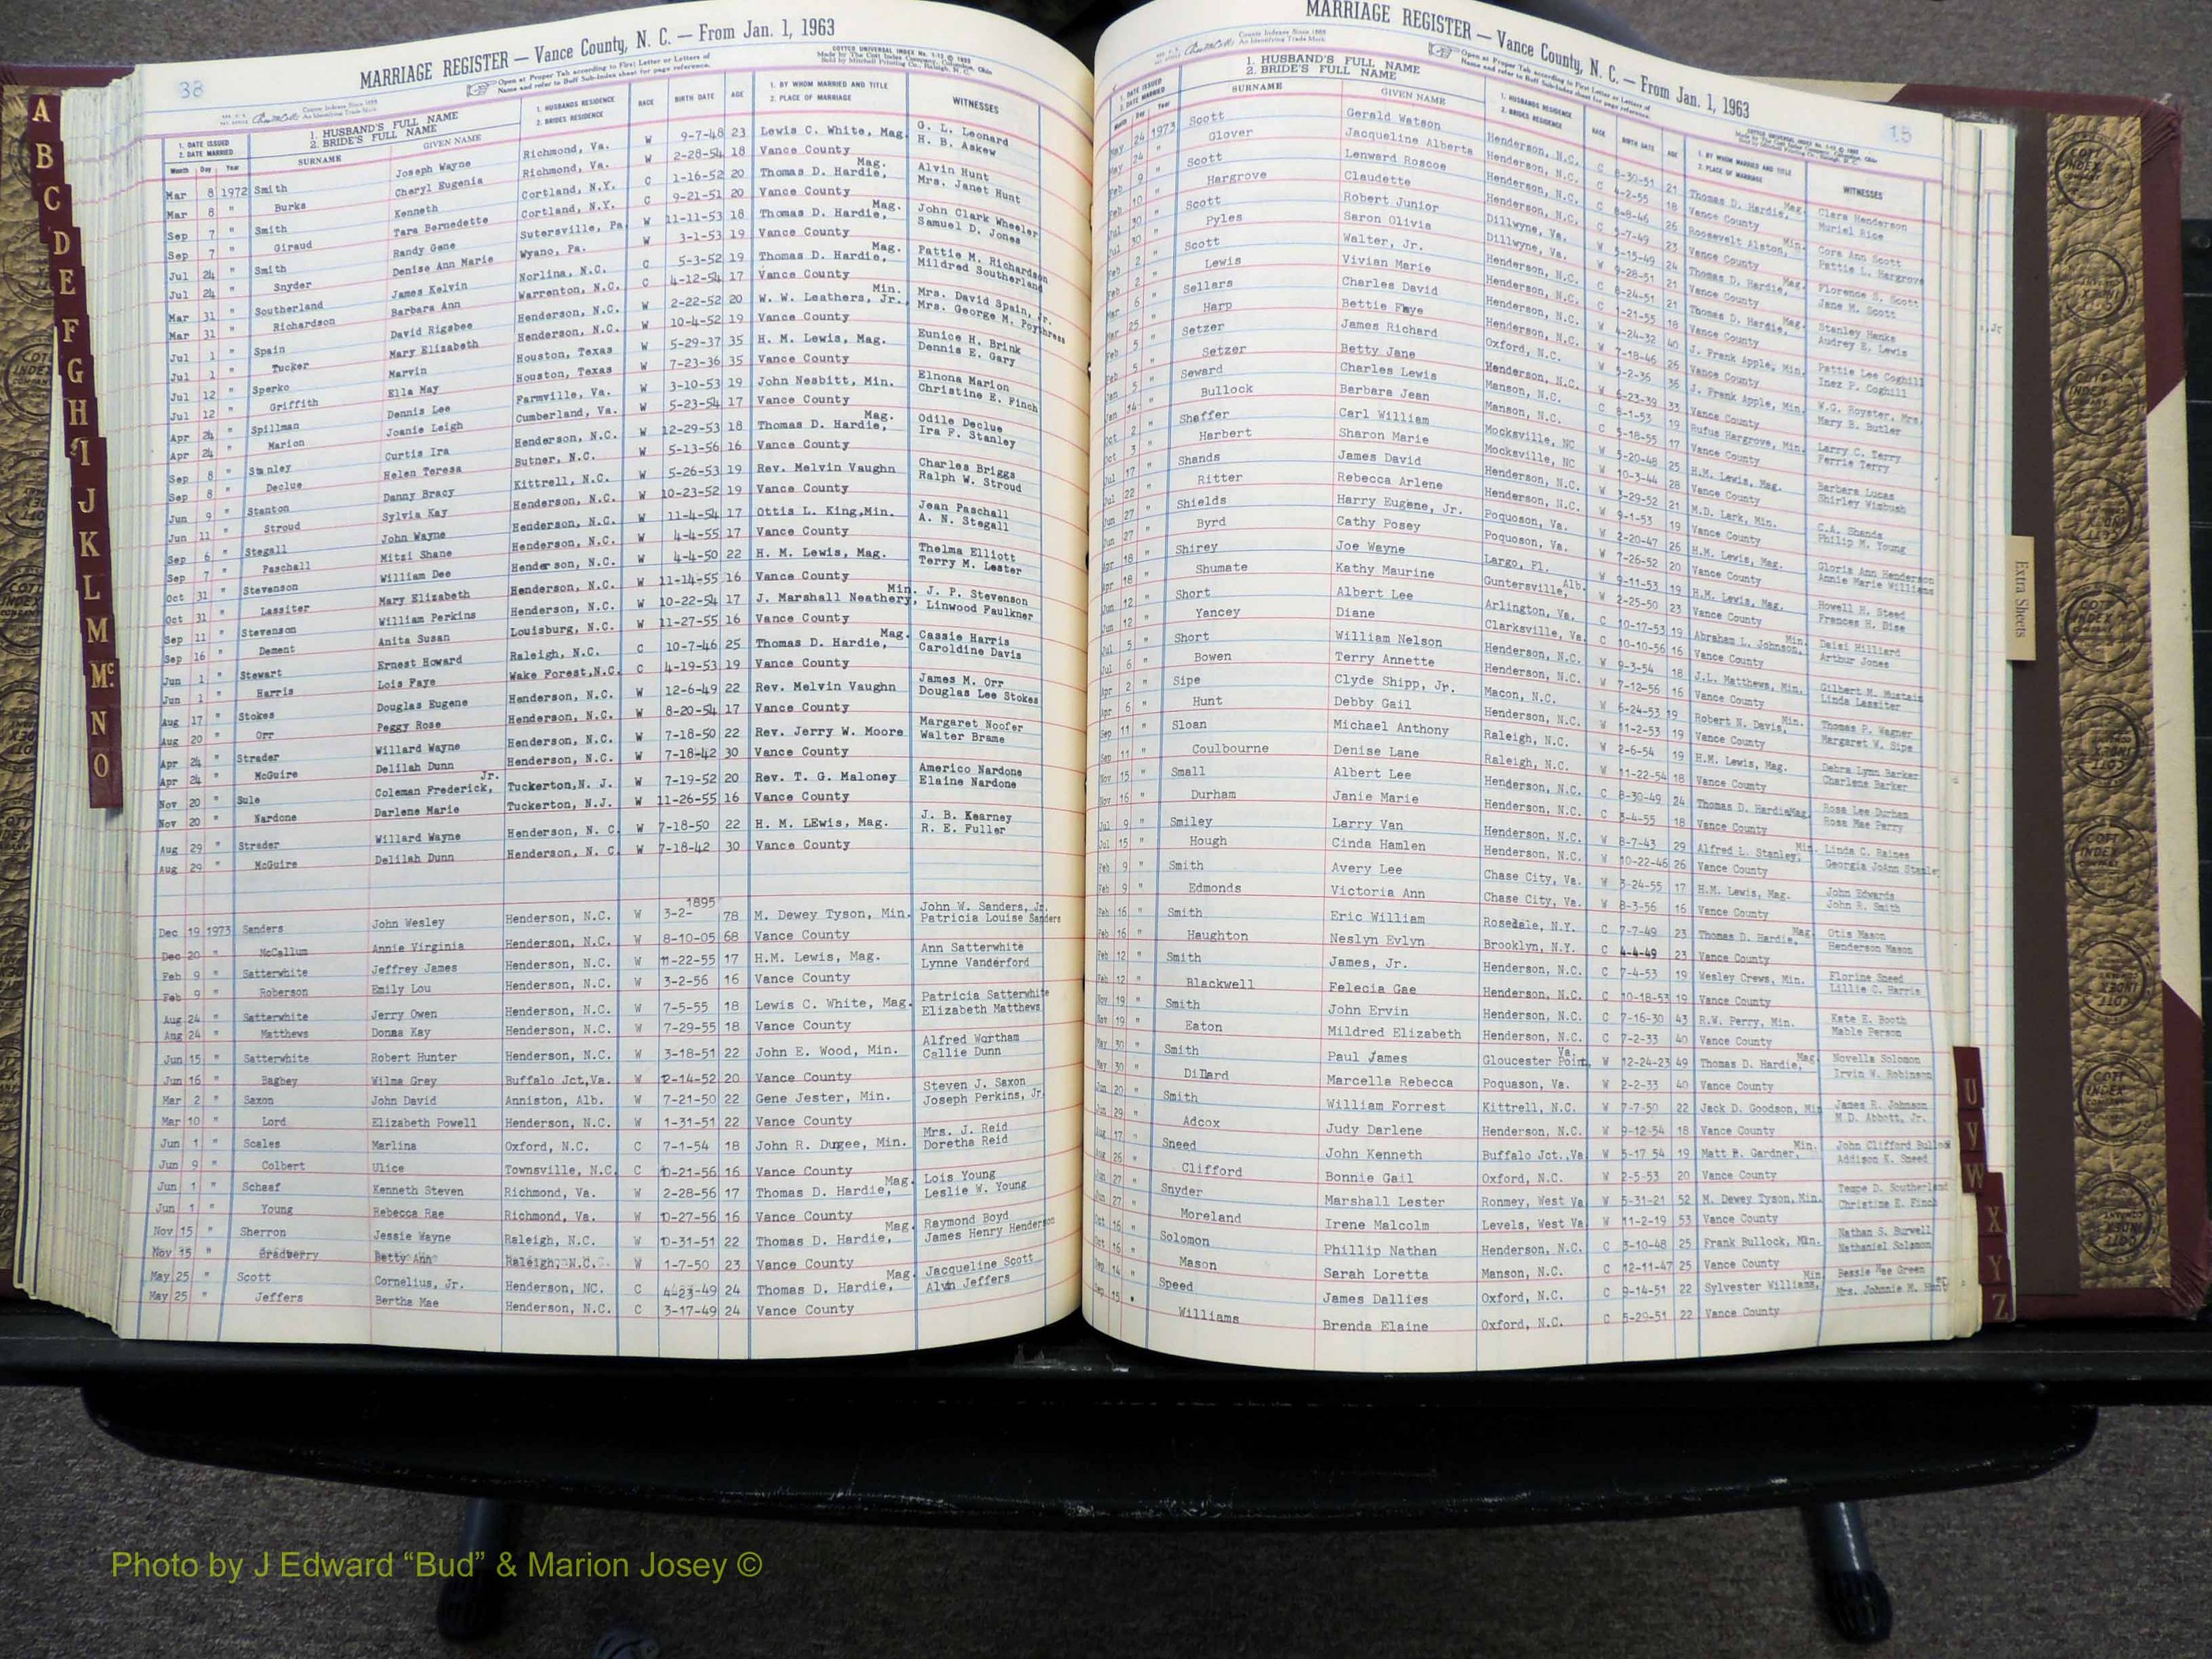 38
MARRIAGE REGISTER — Vance County, N. C. — From Jan. 1, 1963
Open at Proper Tab according to First Letter or Letters of
Name and refer to Buff Sub-Index sheet for page reference.
1. DATE ISSUED
2. DATE MARRIED
Month Day Year
1. HUSBAND'S FULL NAME
2. BRIDE'S FULL NAME
SURNAME GIVEN NAME
1. HUSBANDS RESIDENCE
2. BRIDES RESIDENCE
RACE
BIRTH DATE
AGE
1. BY WHOM MARRIED AND TITLE
2. PLACE OF MARRIAGE
WITNESSES
Mar 8 1972 Smith Joseph Wayne Richmond, Va. W 9-7-48 23 Lewis C. White, Mag. G. L. Leonard
Mar 8 " Burks Cheryl Eugenia Richmond, Va. W 2-28-54 18 Vance County H. B. Askew
Sep 7 " Smith Kenneth Cortland, N.Y. C 1-16-52 20 Thomas D. Hardie, Mag. Alvin Hunt
Sep 7 " Giraud Tara Bernedette Cortland, N.Y. C 9-21-51 20 Vance County Mrs. Janet Hunt
Jul 24 " Smith Randy Gene Sutersville, Pa W 11-11-53 18 Thomas D. Hardie, Mag. John Clark Wheeler
Jul 24 " Snyder Denise Ann Marie Wyano, Pa. W 3-1-53 19 Vance County Samuel D. Jones
Mar 31 " Southerland James Kelvin Norlina, N.C. C 5-3-52 19 Thomas D. Hardie, Mag. Pattie M. Richardson
Mar 31 " Richardson Barbara Ann Warrenton, N.C. C 4-12-54 17 Vance County Mildred Southerland
Jul 1 " Spain David Rigsbee Henderson, N.C. W 2-22-52 20 W. W. Leathers, Jr., Min. Mrs. David Spain, Jr.
Jul 1 " Tucker Mary Elizabeth Henderson, N.C. W 10-4-52 19 Vance County Mrs. George M. Poythress
Jul 12 " Sperko Marvin Houston, Texas W 5-29-37 35 H. M. Lewis, Mag. Eunice H. Brink
Jul 12 " Griffith Ella May Houston, Texas W 7-23-36 35 Vance County Dennis E. Gary
Apr 24 " Spillman Dennis Lee Farmville, Va. W 3-10-53 19 John Nesbitt, Min. Elnona Marion
Apr 24 " Marion Joanie Leigh Cumberland, Va. W 5-23-54 17 Vance County Christine E. Finch
Sep 8 " Stanley Curtis Ira Henderson, N.C. W 12-29-53 18 Thomas D. Hardie, Mag. Odile Declue
Sep 8 " Declue Helen Teresa Butner, N.C. W 5-13-56 16 Vance County Ira F. Stanley
Jun 9 " Stanton Danny Bracy Kittrell, N.C. W 5-26-53 19 Rev. Melvin Vaughn Charles Briggs
Jun 11 " Stroud Sylvia Kay Henderson, N.C. W 10-23-52 19 Vance County Ralph W. Stroud
Sep 6 " Stegall John Wayne Henderson, N.C. W 11-4-54 17 Ottis L. King,Min. Jean Paschall
Sep 7 " Paschall Mitzi Shane Henderson, N.C. W 4-4-55 17 Vance County A. N. Stegall
Oct 31 " Stevenson William Dee Henderson, N.C. W 4-4-50 22 H. M. Lewis, Mag. Thelma Elliott
Oct 31 " Lassiter Mary Elizabeth Henderson, N.C. W 11-14-55 16 Vance County Terry M. Lester
Sep 11 " Stevenson William Perkins Henderson, N.C. W 10-22-54 17 J. Marshall Neathery, Min. J. P. Stevenson
Sep 16 " Dement Anita Susan Louisburg, N.C. W 11-27-55 16 Vance County Linwood Faulkner
Jun 1 " Stewart Ernest Howard Raleigh, N.C. C 10-7-46 25 Thomas D. Hardie, Mag. Cassie Harris
Jun 1 " Harris Lois Faye Wake Forest,N.C. C 4-19-53 19 Vance County Caroldine Davis
Aug 17 " Stokes Douglas Eugene Henderson, N.C. W 12-6-49 22 Rev. Melvin Vaughn James M. Orr
Aug 20 " Orr Peggy Rose Henderson, N.C. W 8-20-54 17 Vance County Douglas Lee Stokes
Apr 24 " Strader Willard Wayne Henderson, N.C. W 7-18-50 22 Rev. Jerry W. Moore Margaret Noofer
Apr 24 " McGuire Delilah Dunn Henderson, N.C. W 7-18-42 30 Vance County Walter Brame
Nov 20 " Sule Coleman Frederick, Jr. Tuckerton,N. J. W 7-19-52 20 Rev. T. G. Maloney Americo Nardone
Nov 20 " Nardone Darlene Marie Tuckerton, N.J. W 11-26-55 16 Vance County Elaine Nardone
Aug 29 " Strader Willard Wayne Henderson, N. C. W 7-18-50 22 H. M. LEwis, Mag. J. B. Kearney
Aug 29 " McGuire Delilah Dunn Henderson, N. C. W 7-18-42 30 Vance County R. E. Fuller
Dec 19 1973 Sanders John Wesley Henderson, N.C. W 3-2-1895 78 M. Dewey Tyson, Min. John W. Sanders, Jr.
Dec 20 " McCallum Annie Virginia Henderson, N.C. W 8-10-05 68 Vance County Patricia Louise Sanders
Feb 9 " Satterwhite Jeffrey James Henderson, N.C. W 11-22-55 17 H.M. Lewis, Mag. Ann Satterwhite
Feb 9 " Roberson Emily Lou Henderson, N.C. W 3-2-56 16 Vance County Lynne Vanderford
Aug 24 " Satterwhite Jerry Owen Henderson, N.C. W 7-5-55 18 Lewis C. White, Mag. Patricia Satterwhite
Aug 24 " Matthews Donna Kay Henderson, N.C. W 7-29-55 18 Vance County Elizabeth Matthews
Jun 15 " Satterwhite Robert Hunter Henderson, N.C. W 3-18-51 22 John E. Wood, Min. Alfred Wortham
Jun 16 " Bagbey Wilma Grey Buffalo Jct,Va. W 12-14-52 20 Vance County Callie Dunn
Mar 2 " Saxon John David Anniston, Alb. W 7-21-50 22 Gene Jester, Min. Steven J. Saxon
Mar 10 " Lord Elizabeth Powell Henderson, N.C. W 1-31-51 22 Vance County Joseph Perkins, Jr.
Jun 1 " Scales Marlina Oxford, N.C. C 7-1-54 18 John R. Dugee, Min. Mrs. J. Reid
Jun 9 " Colbert Ulice Townsville, N.C. C 10-21-56 16 Vance County Doretha Reid
Jun 1 " Schaaf Kenneth Steven Richmond, Va. W 2-28-56 17 Thomas D. Hardie, Mag. Lois Young
Jun 1 " Young Rebecca Rae Richmond, Va. W 10-27-56 16 Vance County Leslie W. Young
Nov 15 " Sherron Jessie Wayne Raleigh, N.C. W 10-31-51 22 Thomas D. Hardie, Mag. Raymond Boyd
Nov 15 " Bradberry Betty Ann Raleigh, N.C. W 1-7-50 23 Vance County James Henry Henderson
May 25 " Scott Cornelius, Jr. Henderson, NC. C 4-23-49 24 Thomas D. Hardie, Mag. Jacqueline Scott
May 25 " Jeffers Bertha Mae Henderson, N.C. C 3-17-49 24 Vance County Alvin Jeffers
A
B
C
D
E
F
G
H
I
J
K
L
M
Mc
N
O
MARRIAGE REGISTER — Vance County, N. C. — From Jan. 1, 1963
15
1. HUSBAND'S FULL NAME
2. BRIDE'S FULL NAME
SURNAME GIVEN NAME
1. HUSBANDS RESIDENCE
2. BRIDES RESIDENCE
RACE
BIRTH DATE
AGE
1. BY WHOM MARRIED AND TITLE
2. PLACE OF MARRIAGE
WITNESSES
May 24 1973 Scott Gerald Watson Henderson, N.C. C 8-30-51 21 Thomas D. Hardie, Mag. Clara Henderson
May 24 " Glover Jacqueline Alberta Henderson, N.C. C 4-2-55 18 Vance County Muriel Rice
Feb 9 " Scott Lenward Roscoe Henderson, N.C. C 8-8-46 26 Roosevelt Alston, Min. Cora Ann Scott
Feb 10 " Hargrove Claudette Henderson, N.C. C 5-7-49 23 Vance County Pattie L. Hargrove
Jul 30 " Scott Robert Junior Dillwyne, Va. W 5-15-49 24 Thomas D. Hardie, Mag. Florence S. Scott
Jul 30 " Pyles Saron Olivia Dillwyne, Va. W 9-28-51 21 Vance County Jane M. Scott
Feb 2 " Scott Walter, Jr. Henderson, N.C. C 8-24-51 21 Thomas D. Hardie, Mag. Stanley Hanks
Feb 2 " Lewis Vivian Marie Henderson, N.C. C 1-21-55 18 Vance County Audrey E. Lewis
Mar 6 " Sellars Charles David Henderson, N.C. W 4-24-32 40 J. Frank Apple, Min. Pattie Lee Coghill
Mar 25 " Harp Bettie Faye Henderson, N.C. W 7-18-46 26 Vance County Inez P. Coghill
Feb 5 " Setzer James Richard Oxford, N.C. W 5-2-36 36 J. Frank Apple, Min. W.G. Royster, Mrs.
Feb 5 " Setzer Betty Jane Henderson, N.C. W 6-23-39 33 Vance County Mary B. Butler
Jan 5 " Seward Charles Lewis Manson, N.C. C 8-1-53 19 Rufus Hargrove, Min. Larry C. Terry
Jan 14 " Bullock Barbara Jean Manson, N.C. C 5-18-55 17 Vance County Ferrie Terry
Oct 2 " Shaffer Carl William Mocksville, NC W 5-20-48 25 H.M. Lewis, Mag. Barbara Lucas
Oct 3 " Harbert Sharon Marie Mocksville, NC W 10-3-44 28 Vance County Shirley Wimbush
Jul 17 " Shands James David Henderson, N.C. W 3-29-52 21 M.D. Lark, Min. C.A. Shands
Jul 22 " Ritter Rebecca Arlene Henderson, N.C. W 9-1-53 19 Vance County Philip M. Young
Jun 27 " Shields Harry Eugene, Jr. Poquoson, Va. W 2-20-47 26 H.M. Lewis, Mag. Gloris Ann Henderson
Jun 27 " Byrd Cathy Posey Poquoson, Va. W 7-26-52 20 Vance County Annie Marie Williams
Apr 18 " Shirey Joe Wayne Largo, Fl. W 9-11-53 19 H.M. Lewis, Mag. Howell H. Steed
Apr 18 " Shumate Kathy Maurine Guntersville, Alb. W 2-25-50 23 Vance County Frances H. Dise
Jun 12 " Short Albert Lee Arlington, Va. C 10-17-53 19 Abraham L. Johnson, Min. Daisi Hilliard
Jun 12 " Yancey Diane Clarksville, Va. C 10-10-56 16 Vance County Arthur Jones
Jul 5 " Short William Nelson Henderson, N.C. W 9-3-54 18 J.L. Matthews, Min. Gilbert M. Mustain
Jul 6 " Bowen Terry Annette Henderson, N.C. W 7-12-56 16 Vance County Linda Lassiter
Apr 2 " Sipe Clyde Shipp, Jr. Macon, N.C. W 6-24-53 19 Robert N. Davis, Min. Thomas P. Wagner
Apr 6 " Hunt Debby Gail Henderson, N.C. W 11-2-53 19 Vance County Margaret W. Sipe
Sep 11 " Sloan Michael Anthony Raleigh, N.C. W 2-6-54 19 H.M. Lewis, Mag. Debra Lynn Barker
Sep 11 " Coulbourne Denise Lane Raleigh, N.C. W 11-22-54 18 Vance County Charlene Barker
Nov 15 " Small Albert Lee Henderson, N.C. C 8-30-49 24 Thomas D. HardieMag. Rosa Lee Durham
Nov 16 " Durham Janie Marie Henderson, N.C. C 3-4-55 18 Vance County Rosa Mae Perry
Jul 9 " Smiley Larry Van Henderson, N.C. W 8-7-43 29 Alfred L. Stanley, Min. Linda C. Raines
Jul 15 " Hough Cinda Hamlen Henderson, N.C. W 10-22-46 26 Vance County Georgia JoAnn Stanley
Feb 9 " Smith Avery Lee Chase City, Va. W 3-24-55 17 H.M. Lewis, Mag. John Edwards
Feb 9 " Edmonds Victoria Ann Chase City, Va. W 8-3-56 16 Vance County John R. Smith
Feb 16 " Smith Eric William Rosedale, N.Y. C 7-7-49 23 Thomas D. Hardie, Mag. Otis Mason
Feb 16 " Haughton Neslyn Evlyn Brooklyn, N.Y. C 4-4-49 23 Vance County Henderson Mason
Feb 12 " Smith James, Jr. Henderson, N.C. C 7-4-53 19 Wesley Crews, Min. Florine Sneed
Feb 12 " Blackwell Felecia Gae Henderson, N.C. C 10-18-53 19 Vance County Lillie C. Harris
Nov 19 " Smith John Ervin Henderson, N.C. C 7-16-30 43 R.W. Perry, Min. Kate E. Booth
Nov 19 " Eaton Mildred Elizabeth Henderson, N.C. C 7-2-33 40 Vance County Mable Person
May 30 " Smith Paul James Gloucester Point, Va. W 12-24-23 49 Thomas D. Hardie, Mag. Novella Solomon
May 30 " Dillard Marcella Rebecca Poquason, Va. W 2-2-33 40 Vance County Irvin W. Robinson
Jun 20 " Smith William Forrest Kittrell, N.C. W 7-7-50 22 Jack D. Goodson, Min James R. Johnson
Jun 29 " Adcox Judy Darlene Henderson, N.C. W 9-12-54 18 Vance County M.D. Abbott, Jr.
Aug 17 " Sneed John Kenneth Buffalo Jct.,Va W 5-17 54 19 Matt R. Gardner, Min. John Clifford Bullock
Aug 26 " Clifford Bonnie Gail Oxford, N.C. W 2-5-53 20 Vance County Addison K. Sneed
Jun 27 " Snyder Marshall Lester Ronmey, West Va W 5-31-21 52 M. Dewey Tyson, Min. Tempe D. Southerland
Jun 27 " Moreland Irene Malcolm Levels, West Va W 11-2-19 53 Vance County Christine E. Finch
Oct 16 " Solomon Phillip Nathan Henderson, N.C. C 3-10-48 25 Frank Bullock, Min. Nathan S. Burwell
Oct 16 " Mason Sarah Loretta Manson, N.C. C 12-11-47 25 Vance County Nathaniel Solomon
Sep 14 " Speed James Dallies Oxford, N.C. C 9-14-51 22 Sylvester Williams, Min Bessie Mae Green
Sep 15 " Williams Brenda Elaine Oxford, N.C. C 5-29-51 22 Vance County Mrs. Johnnie M. Hunter
Extra Sheets
U
V
W
X
Y
Z
Photo by J Edward “Bud” & Marion Josey ©